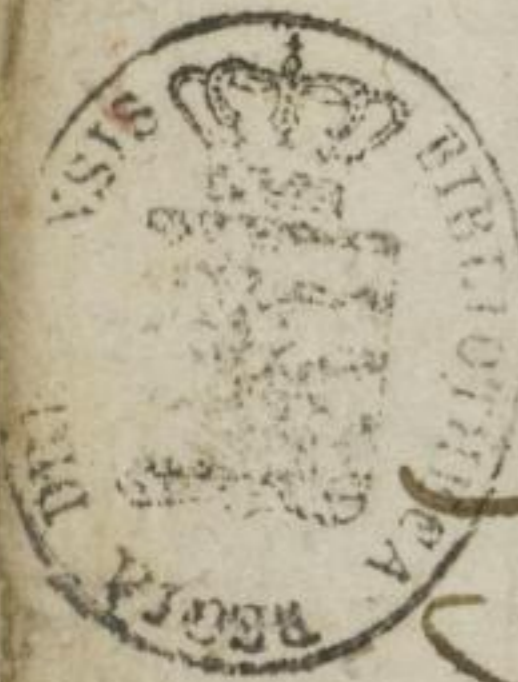 BIBLIOTHECA REGIA